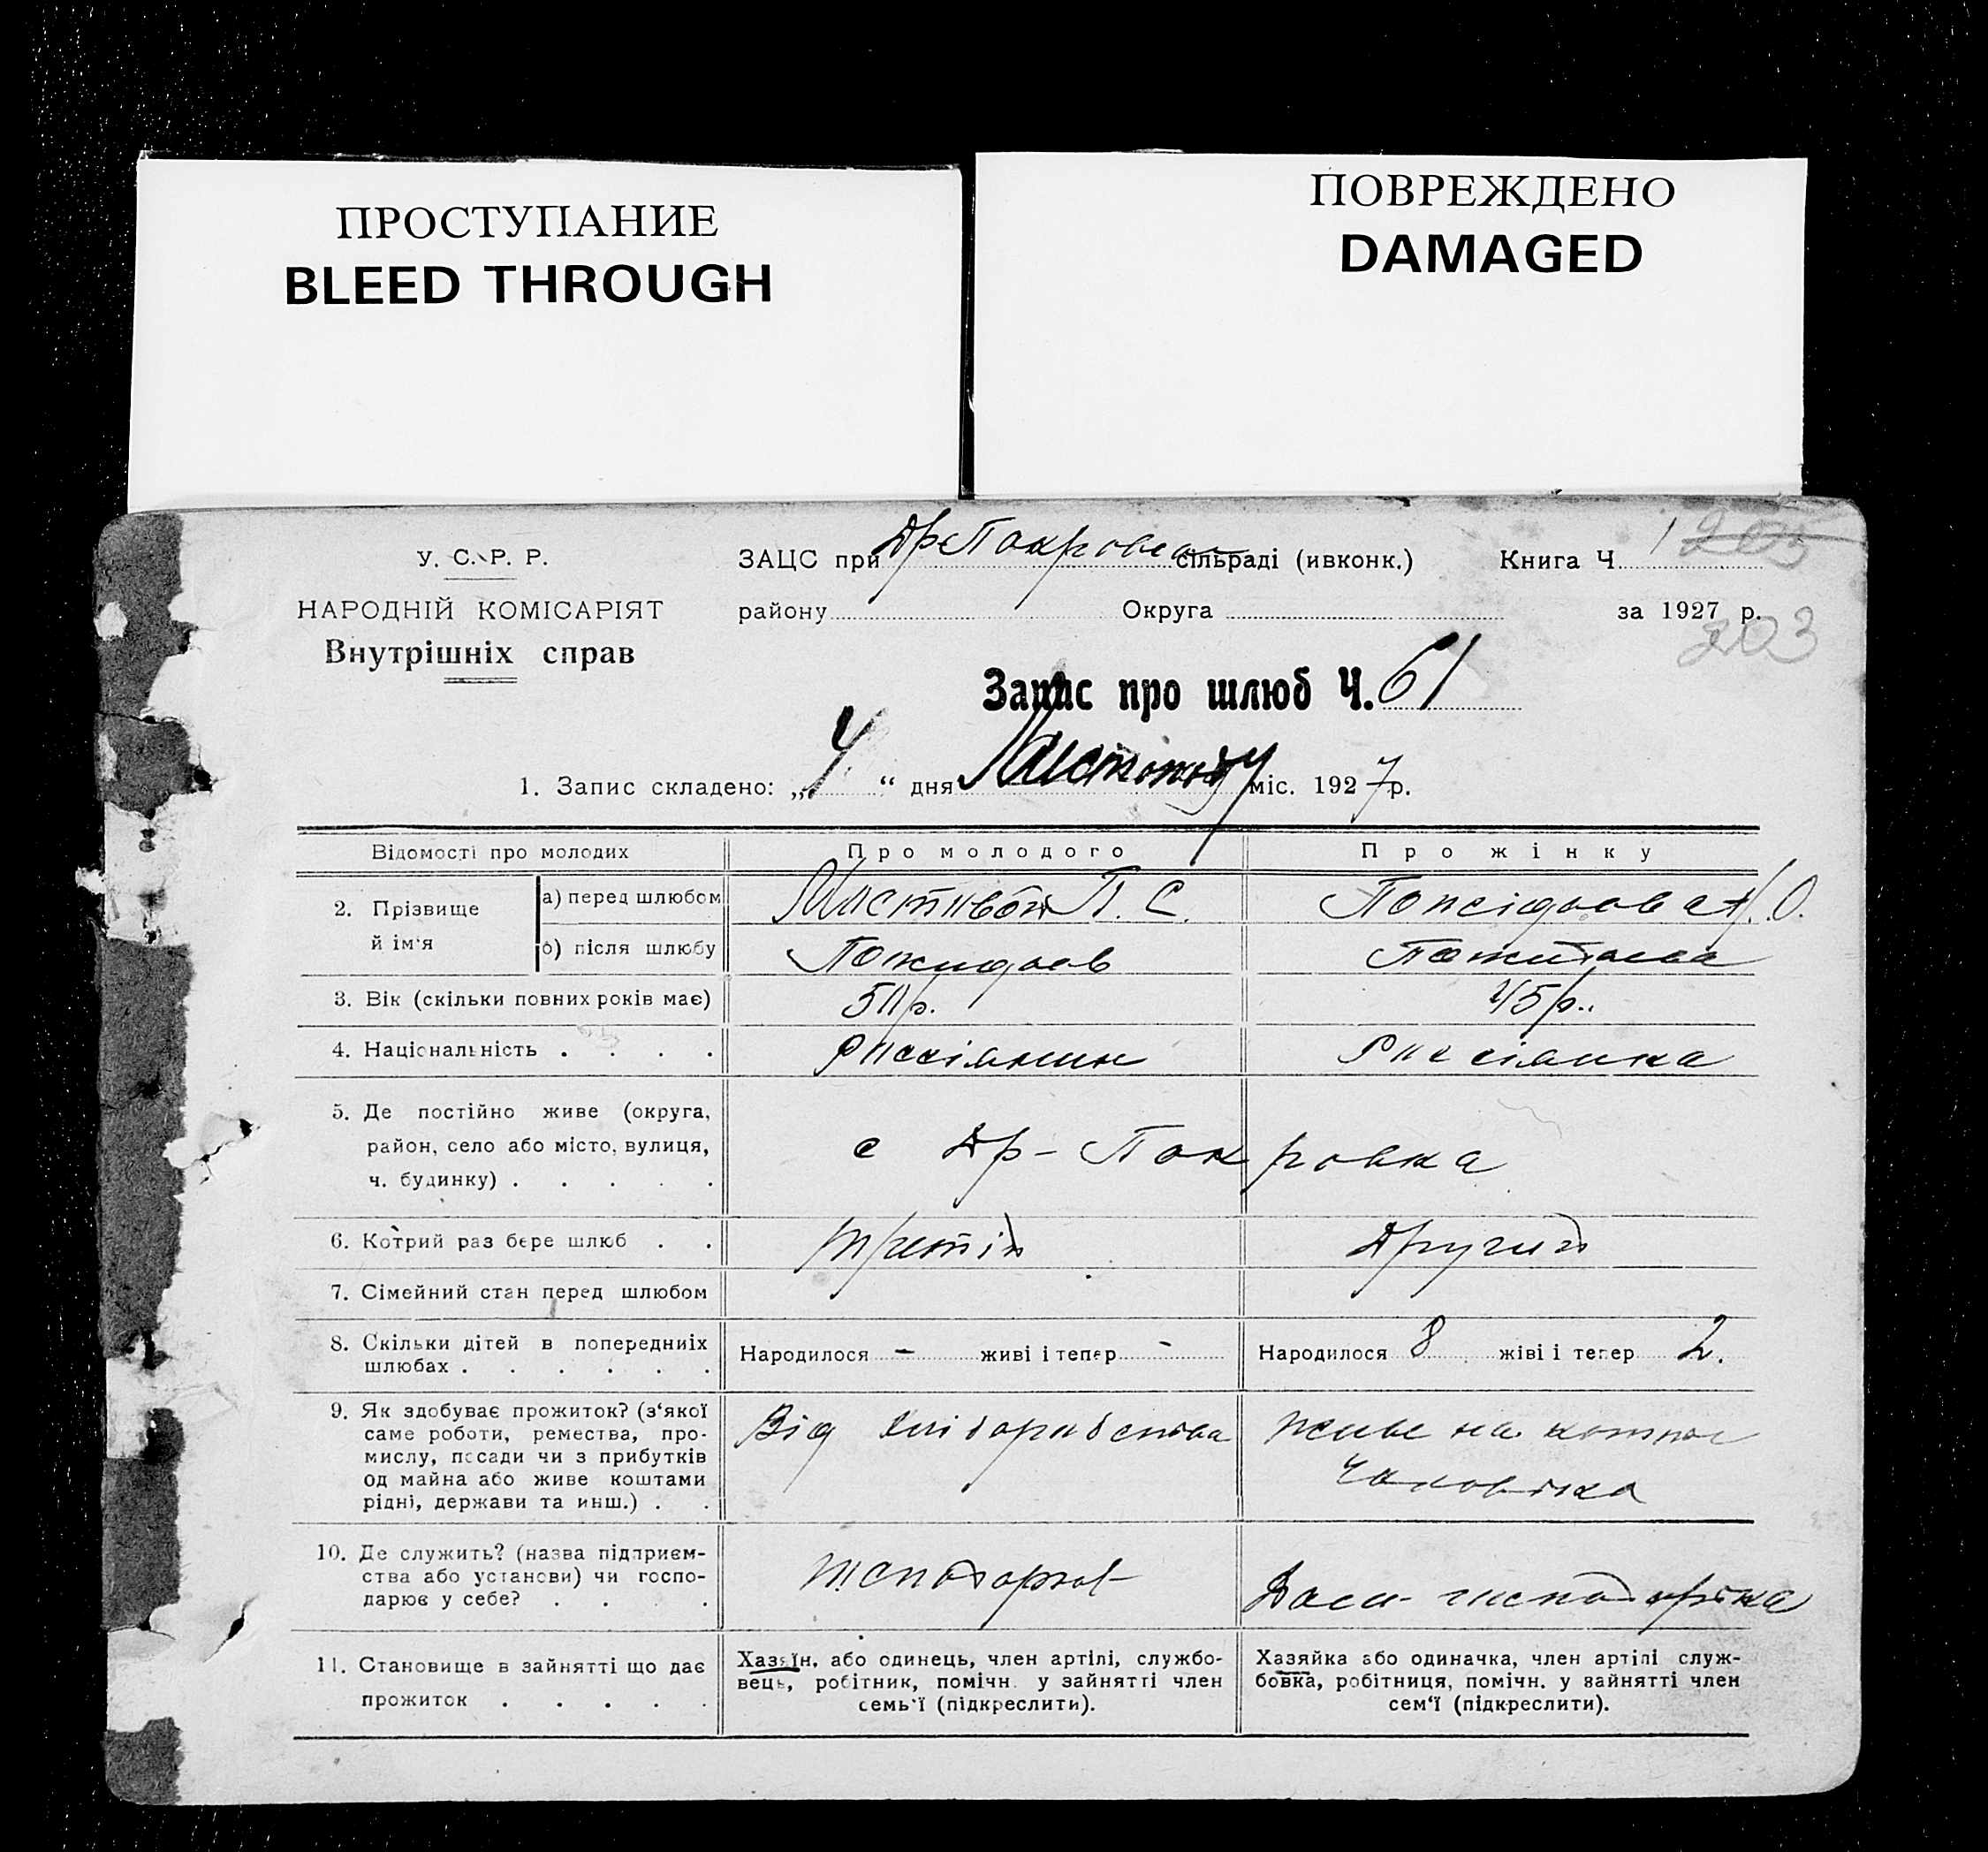 ПРОСТУПАНИЕ
BLEED THROUGH
ПОВРЕЖДЕНО
DAMAGED
У. С. Р. Р.
НАРОДНІЙ КОМІСАРІЯТ
Внутрішніх справ
ЗАЦС при Др Покровськ сільраді (ивконк.) Книга Ч. 1 205
району Округа за 1927 р.
203
Запис про шлюб Ч. 61
1. Запис складено: „4“ дня Листопаду міс. 1927 р.
Відомості про молодих Про молодого Про жінку
2. Прізвище й ім'я
а) перед шлюбом П. С. О.
б) після шлюбу Пожидаєв Пожидаєва
3. Вік (скільки повних років має) 50р. 45р.
4. Національність . . . . Руссіянин Руссіянка
5. Де постійно живе (округа,
район, село або місто, вулиця,
ч. будинку) . . . . .
с Др-Покровка
6. Котрий раз бере шлюб . . третій Другий
7. Сімейний стан перед шлюбом
8. Скільки дітей в попередниіх
шлюбах . . . . . .
Народилося - живі і тепер - Народилося 8 жіві і тепер 2.
9. Як здобуває прожиток? (з‘якої
саме роботи, ремества, про-
мислу, посади чи з прибутків
од майна або живе коштами
рідні, держави та инш.) . .
Від хліборобства
живе на кошти
Чоловіка
10. Де служить? (назва підприєм-
ства або установи) чи госпо-
дарює у себе? . . . .
господарює
Дома- господарка
11. Становище в зайнятті що дає
прожиток . . . . .
Хазяїн, або одинець, член артілі, службо-
вець, робітник, помічн. у зайнятті член
семь‘ї (підкреслити).
Хазяйка або одиначка, член артілі служ-
бовка, робітниця, помічн. у зайнятті член
сем‘ї (підкреслити).